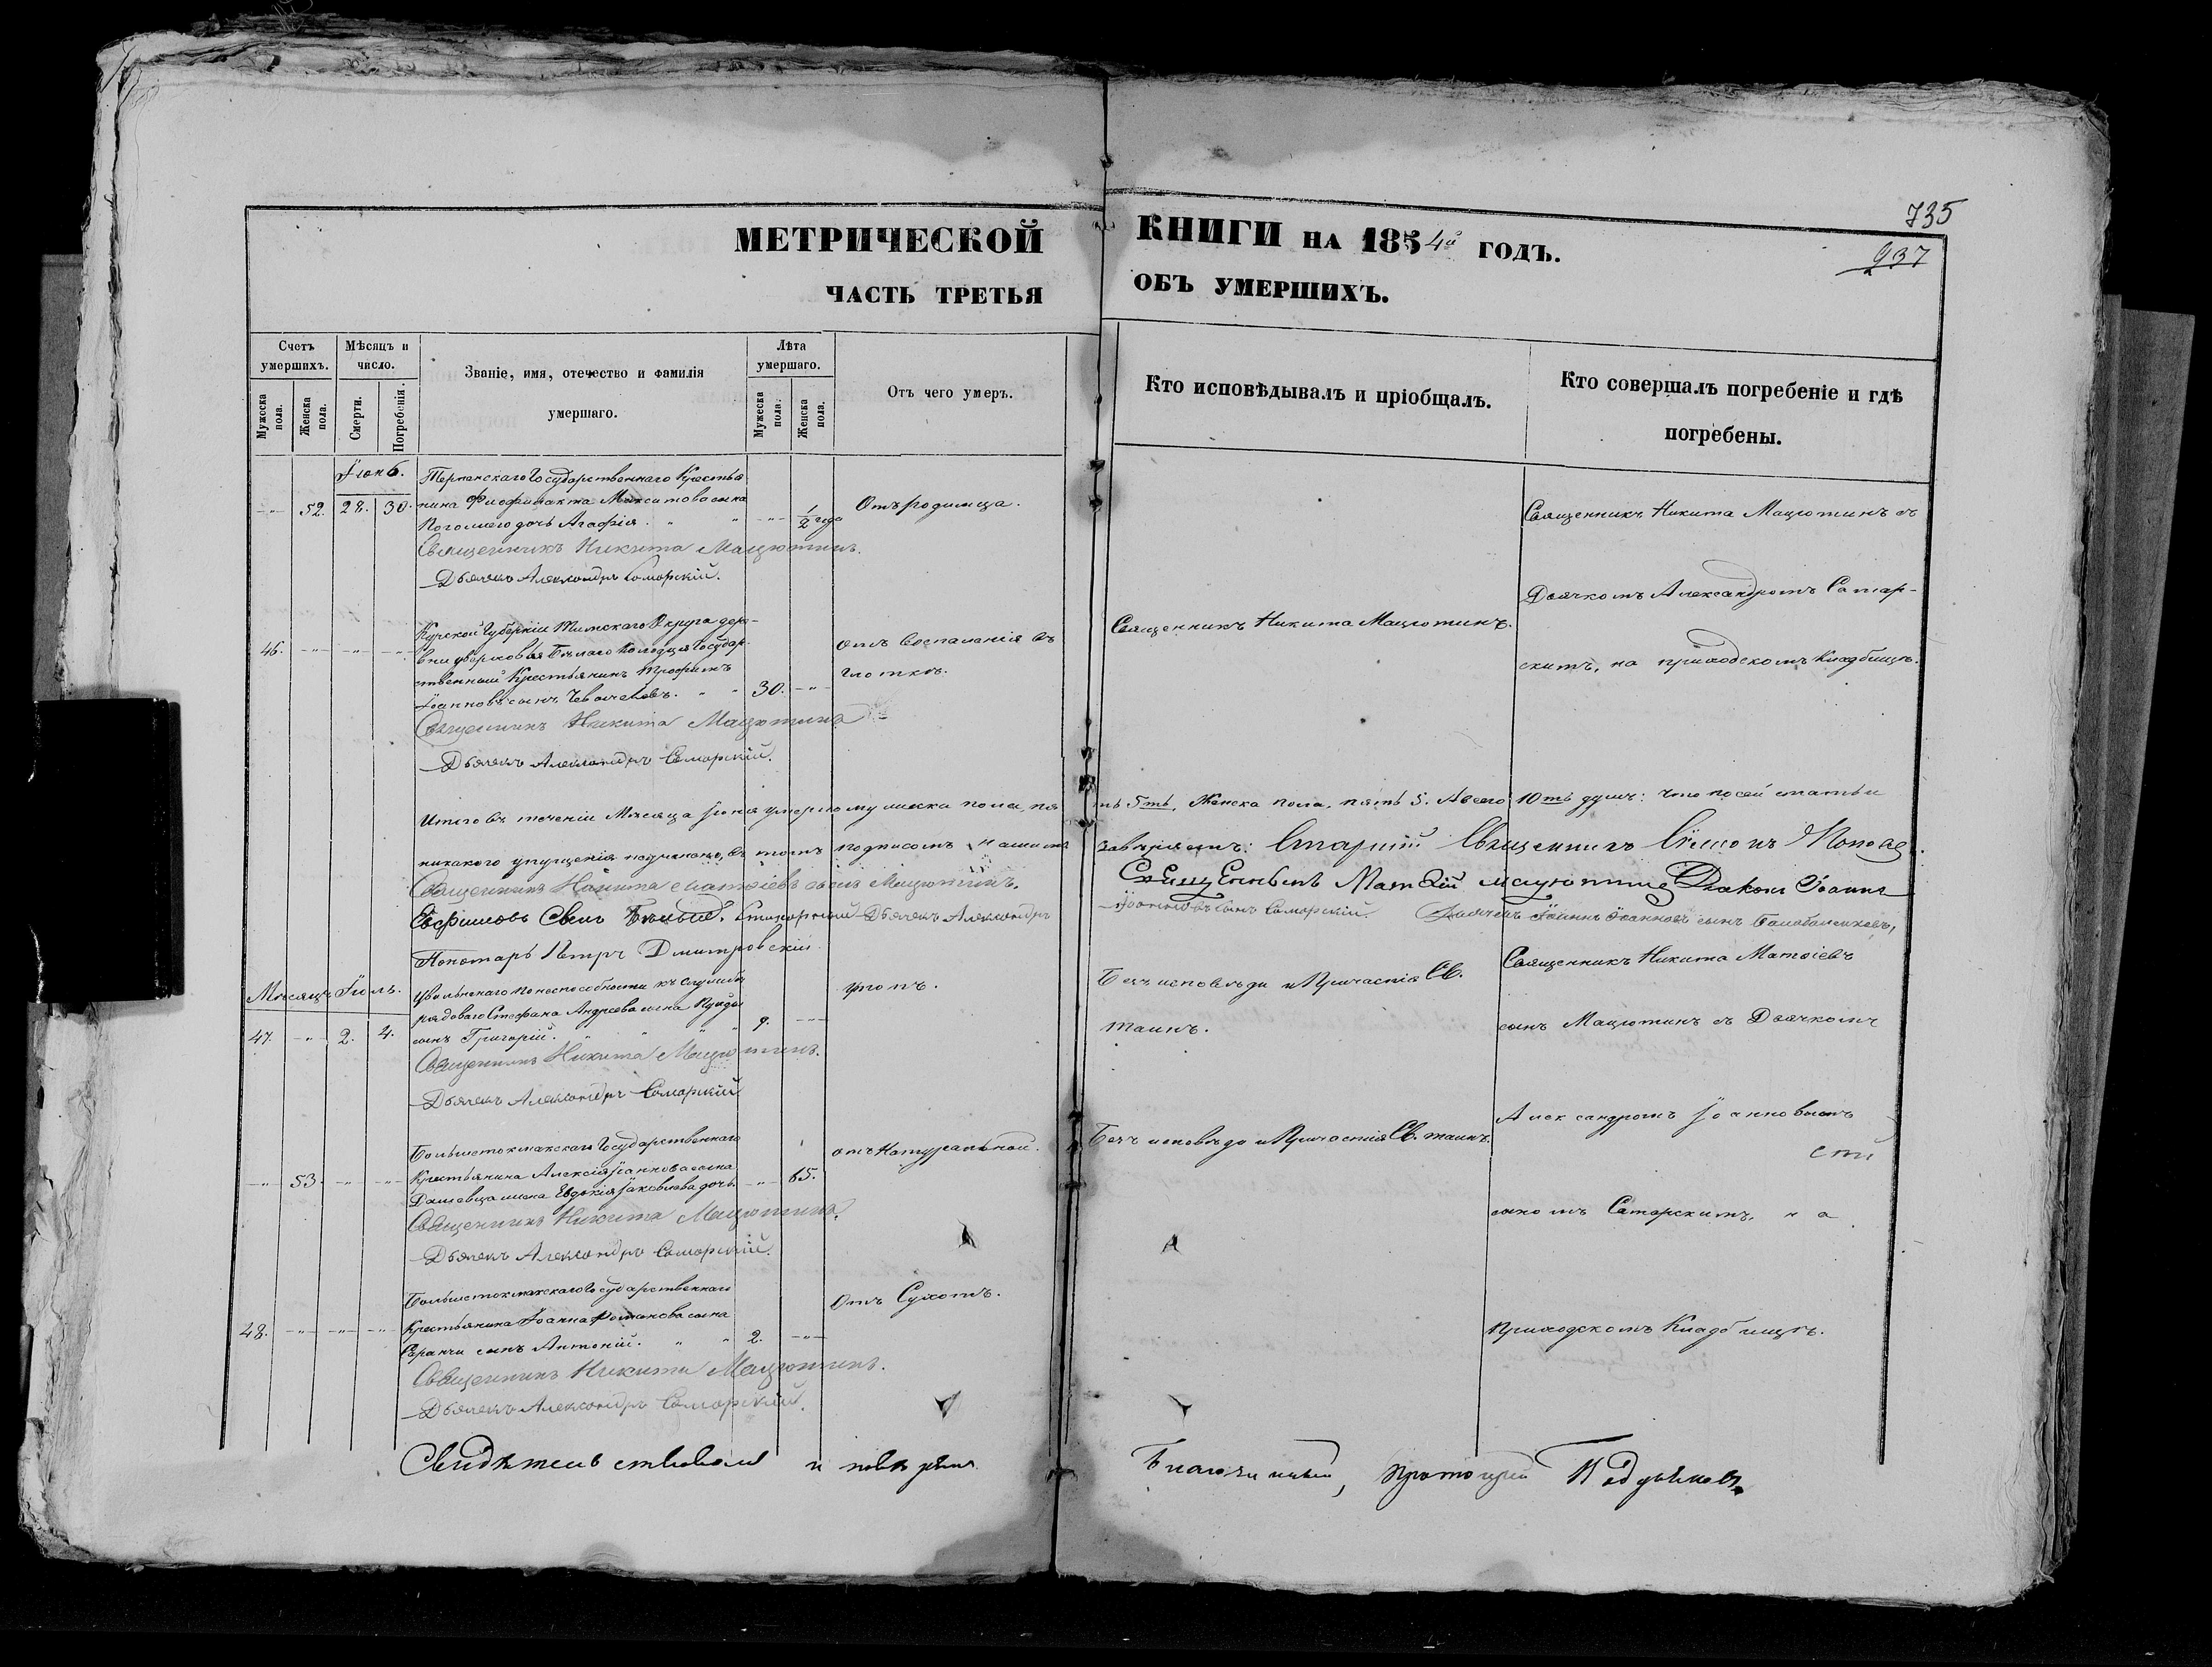 735
937
МЕТРИЧЕСКОЙ КНИГИ НА 1854й ГОДЪ.
ЧАСТЬ ТРЕТЬЯ ОБЪ УМЕРШИХЪ.
Счетъ умершихъ.
Мужеска пола.
Женска пола.
Мѣсяцъ и число.
Смерти.
Погребенія.
Званіе, имя, отечество и фамилія
умершаго.
Лѣта умершаго.
Мужеска пола.
Женска пола.
Отъ чего умеръ.
Кто исповѣдывалъ и пріобщалъ.
Кто совершалъ погребеніе и гдѣ
погребены.
Іюнь.
52. 28. 30.
Государственнаго Крестья
нина сына
дочь Агафія. 1/2 года
Отъ родимца.
Священникъ Никита Мацютинъ съ
Священникъ Никита Мацютинъ.
Дьячекъ Александръ Самарскій.
Дьячкомъ Александромъ Самар-
скимъ, на приходскомъ Кладбищѣ.
46.
Курской Губерніи Тимскаго Округа дере-
вни Бѣлаго Колодезя Государ-
ственный Крестьянинъ Трофимъ
Іоанновъ сынъ 30.
отъ воспаленія въ
глоткѣ.
Священникъ Никита Мацютинъ.
Священникъ Никита Мацютинъ
Дьячекъ Александръ Самарскій.
Итого въ теченіи Мѣсяца Іюня умерло мужеска пола пя
ть 5ть, Женска пола, пять 5. А всего 10ть душъ: что по сей статьи
никакого упущенія не учинено, въ томъ подписомъ нашимъ
завѣряемъ: Старшій Священникъ Сѵмеонъ Попов
Священникъ Никита Матѳіевъ сынъ Мацютинъ.
Священникъ Матѳій Мацютинъ Діаконъ Іоаннъ
Ефимовъ Сынъ Бѣлый. Стихарный Дьячекъ Александръ
Іоанновъ сынъ Самарскій. Дьячекъ Іоаннъ Іоанновъ сынъ
Пономарь Петръ Дмитровскій
Мѣсяцъ Іюль.
47. 2. 4.
Уволеннаго по неспособности къ службѣ
рядоваго Стефана Андреева сына
сынъ Григорій. 9.
утопъ.
Безъ исповѣди и Причастія Св.
Таинъ.
Священникъ Никита Матѳіевъ
сынъ Мацютинъ съ Дьячкомъ
Священникъ Никита Мацютинъ.
Дьячекъ Александръ Самарскій
Александромъ Іоанновымъ
53.
Большетокмакскаго Государственнаго
Крестьянина Алексія Іоаннова сына
жена Евдокія Іаковлева дочь. 65.
отъ Натуральной.
Безъ исповѣди и Причастія Св. таинъ.
сыномъ Самарскимъ, на
Священникъ Никита Мацютинъ.
Дьячекъ Александръ Самарскій.
48.
Большетокмакскаго Государственнаго
Крестьянина Іоанна Романова сына
Саранчи сынъ Антоній. 2.
Отъ Сухотъ.
Приходскомъ Кладбищѣ.
Священникъ Никита Мацютинъ.
Дьячекъ Александръ Самарскій.
Свидѣтельствовалъ и повѣрялъ
Благочинный, протоіерей